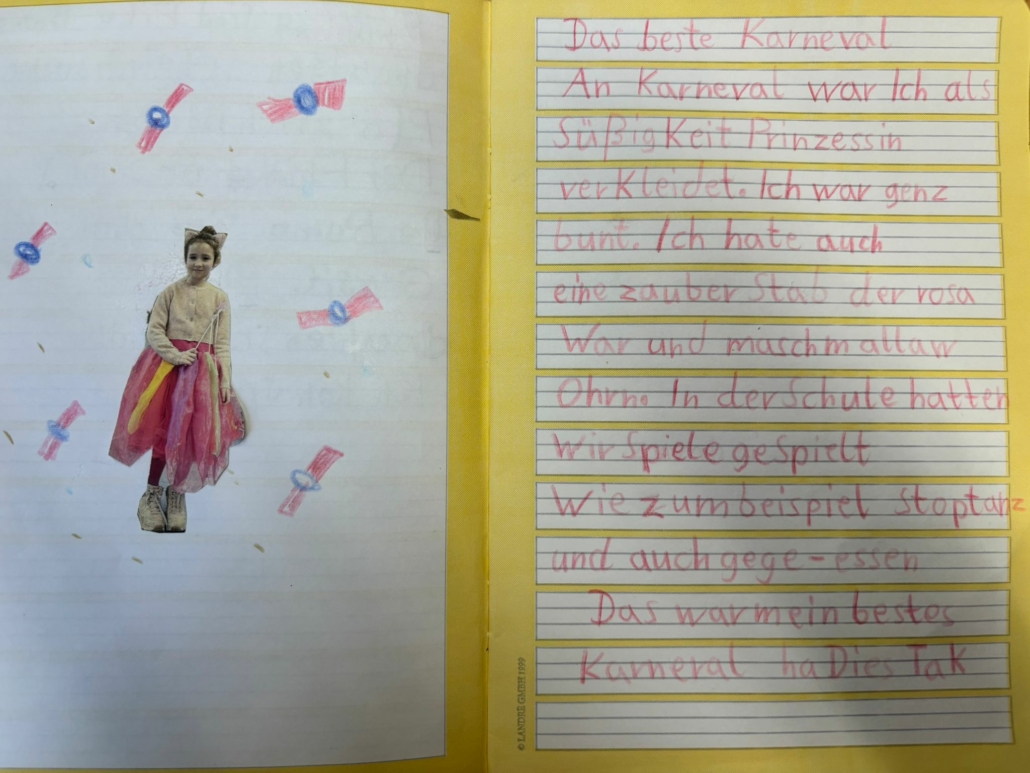 Das beste Karneval
An Karneval war Ich als
Süßigkeit Prinzessin
verkleidet. Ich war genz
bunt. Ich hate auch
eine zauber Stab der rosa
War und maschmallaw
Ohrn. In der Schule hatten
Wir Spiele gespielt
Wie zum beispiel Stoptanz
und auch gege-essen
Das war mein bestes
Karneval haDies Tak
© LANDRÉ GMBH 1999